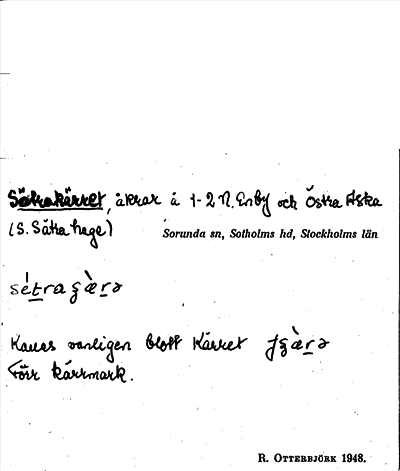 Sätrakärret, åkrar å 1-2 N. Enby och Östra Aska
(S. Sätra hage) Sorunda sn, Sotholms hd, Stockholms län
Kallas vanligen blott Kärret
Förr kärrmark.
R. OTTERBJÖRK 1948.